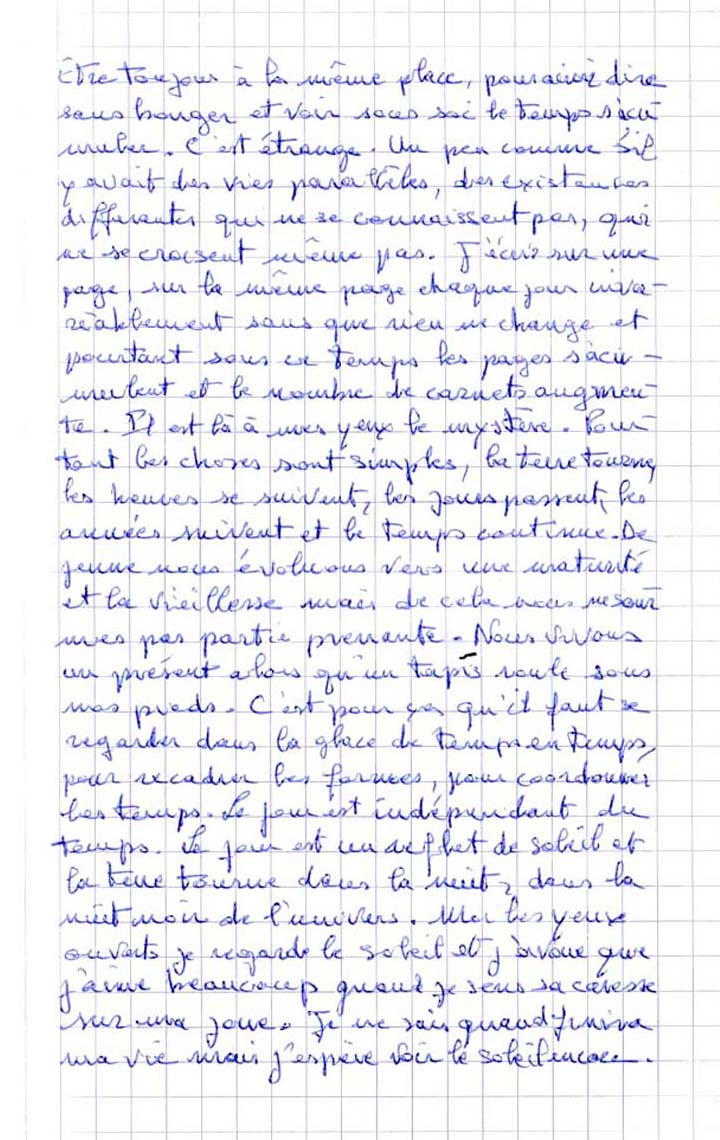 Être toujours à la même place, pour ainsi dire
sans bouger et voir sous soi le temps s'accu
muler. C'est étrange. Un peu comme s'il
y avait des vies parallèles, des existences
différentes qui ne se connaissent pas, qui
ne se croisent même pas. J'écris sur une
page, sur la même page chaque jour inva-
réablement sans que rien ne change et
pourtant sous ce temps les pages s'accu-
mulent et le nombre de carnets augmen
te. Il est là à mes yeux le mystère. Pour
tant les choses sont simples, la terre tourne,
les heures se suivent, les jours passent, les
années suivent et le temps continue. De
jeune nous évoluons vers une maturité
et la vieillesse mais de cela nous ne som
mes pas partie prenante. Nous vivons
un présent alors qu'un tapis roule sous
nos pieds. C'est pour ça qu'il faut se
regarder dans la glace de temps en temps,
pour recadrer les formes, pour coordonner
les temps. Le jour est indépendant du
temps. Le jour est un reflet de soleil et
la terre tourne dans la nuit, dans la
nuit noir de l'univers. Moi les yeux
ouverts je regarde le soleil et j'avoue que
j'aime beaucoup quand je sens sa caresse
sur ma joue. Je ne sais quand finira
ma vie mais j'espère voir le soleil encore.